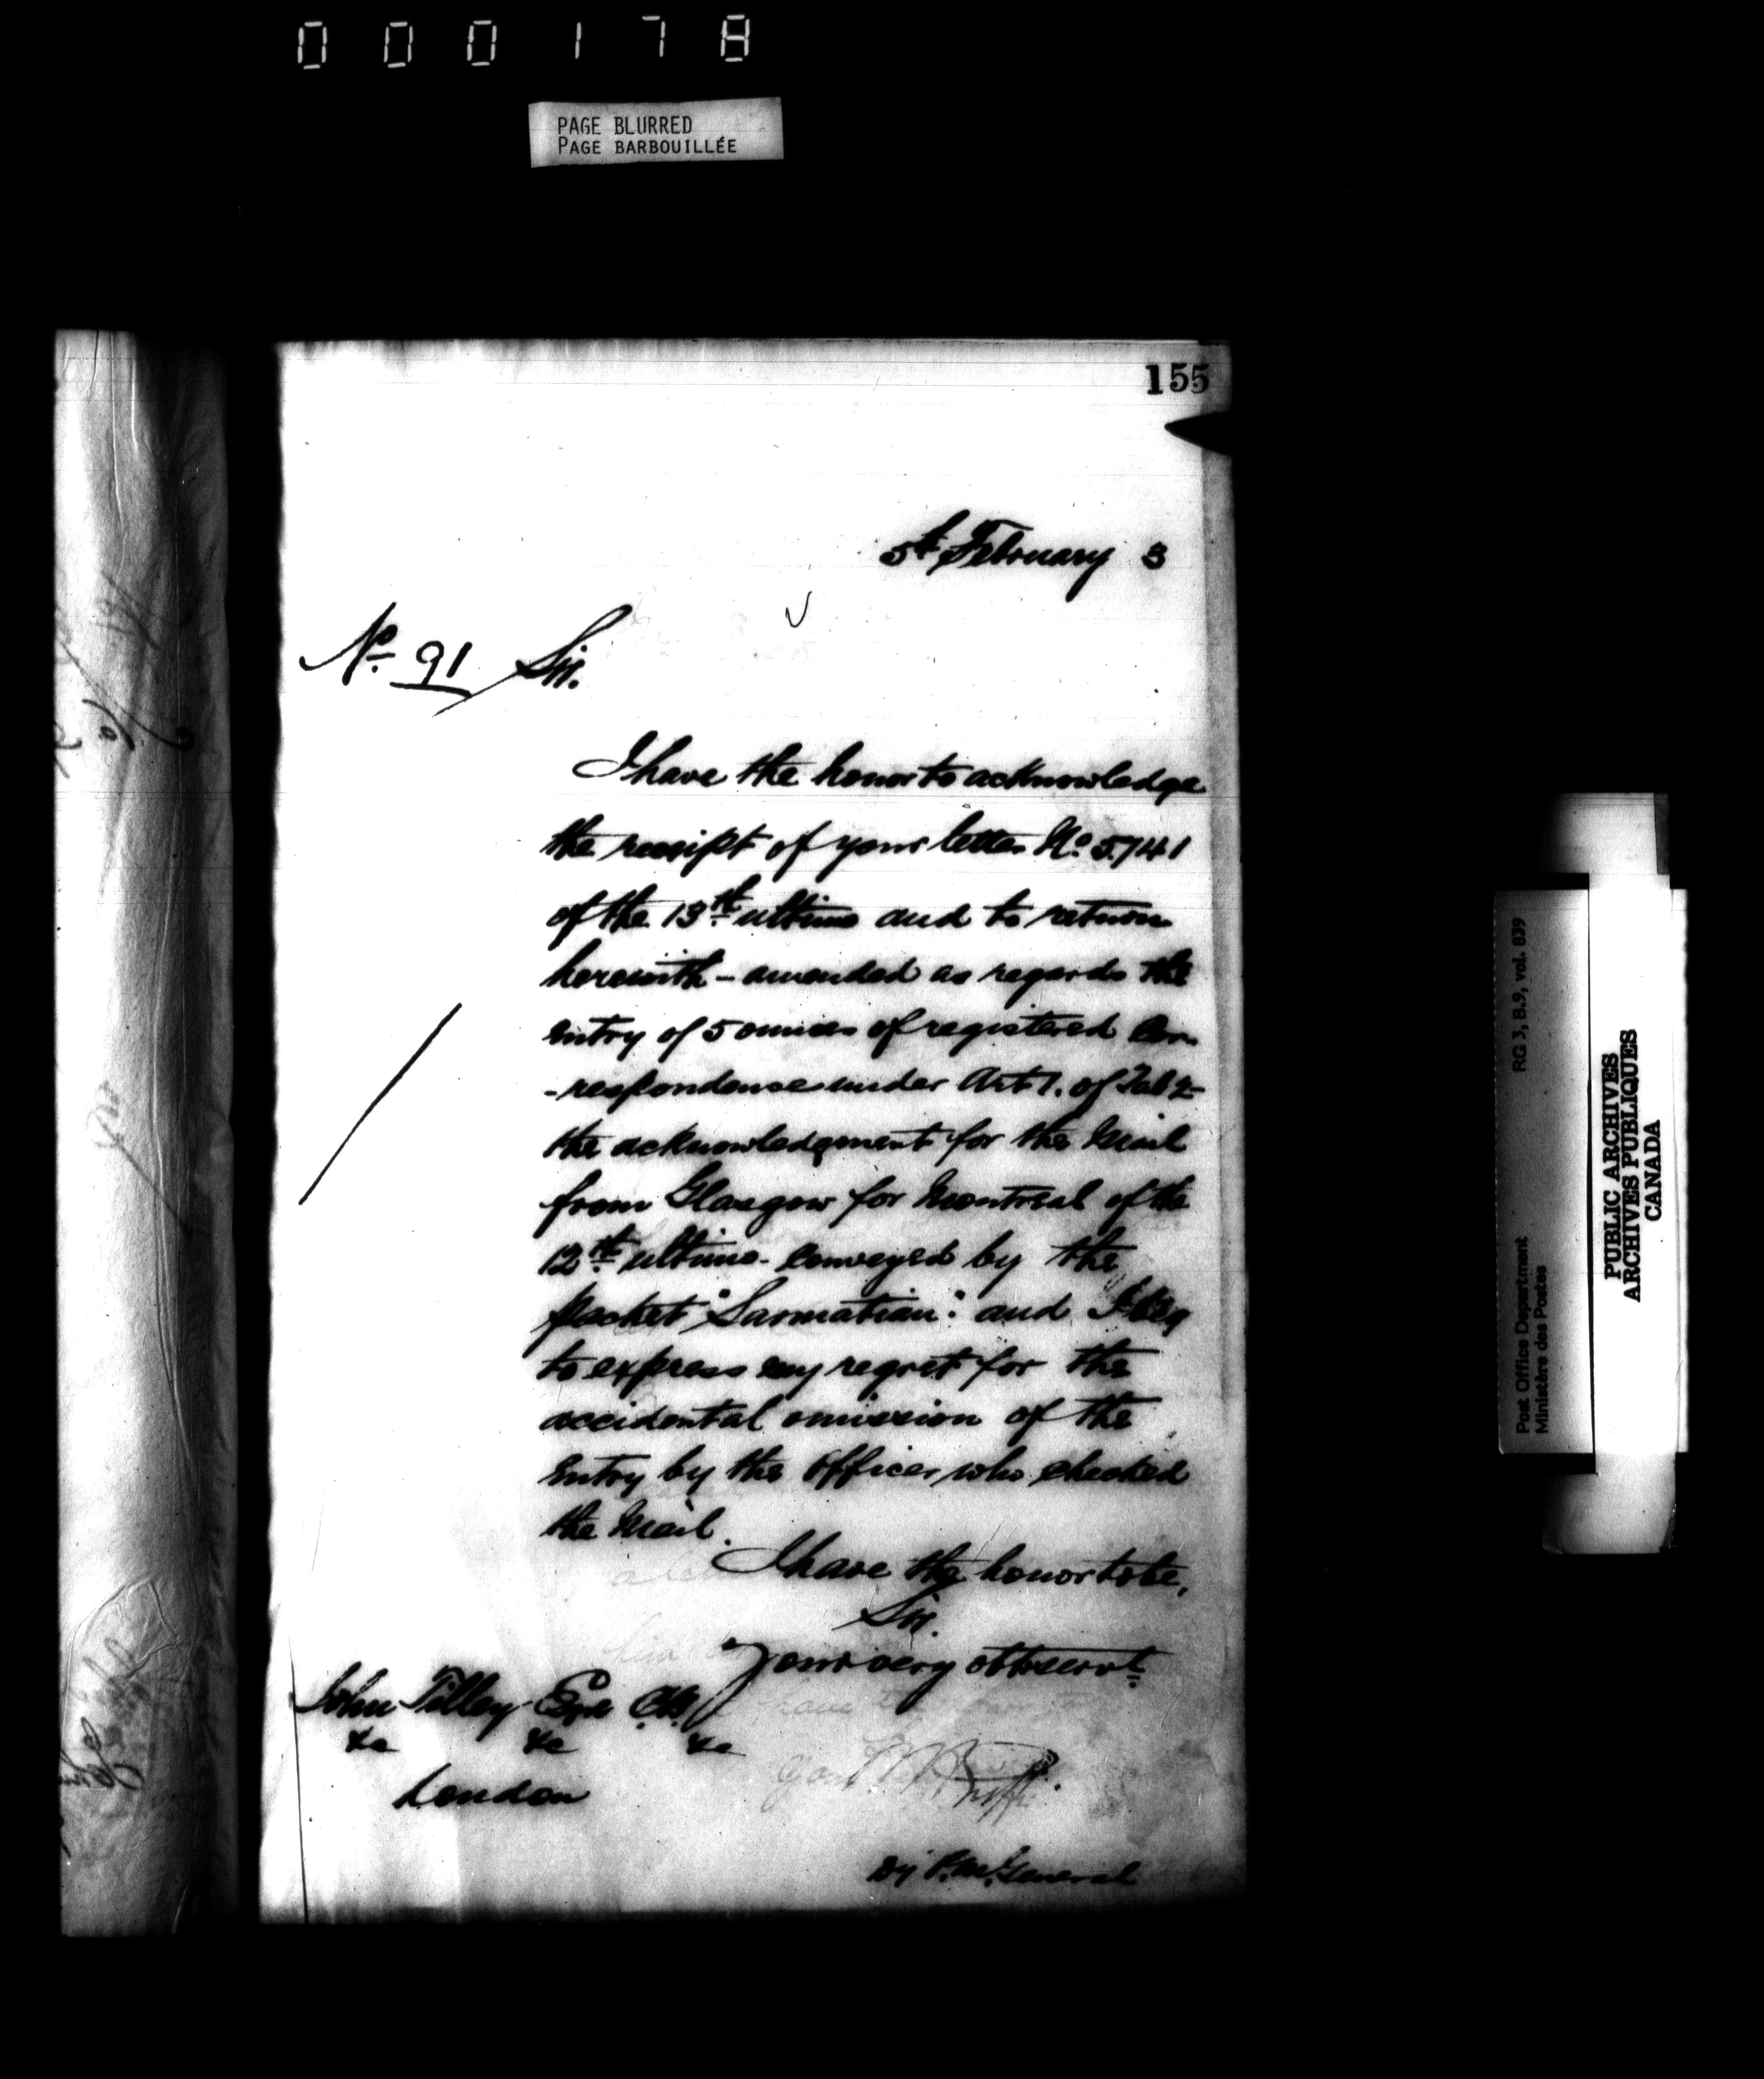 000178
PAGE BLURRED
PAGE BARBOUILLÉE
155
5th February 3
No. 91 Sir.
I have the honor to acknowledge
the receipt of your letter No. 5741
of the 13th ultimo and to return
herewith - amended as regards the
entry of 5 ounces of registered Cor-
-respondence under Art 1. of Tab 2-
the acknowledgment for the Mail
from Glasgow for Montreal of the
12th ultimo - conveyed by the
packet "Sarmatian": and I beg
to express my regret for the
accidental omission of the
entry by the Officer who checked
the Mail.
I have the honor to be,
Sir.
Your very obt servt
John Tilley Esqr CB.
&c &c &c
London
Dy P.M. General
Post Office Department RG 3, B.9, vol. 839
Ministère des Postes
PUBLIC ARCHIVES
ARCHIVES PUBLIQUES
CANADA